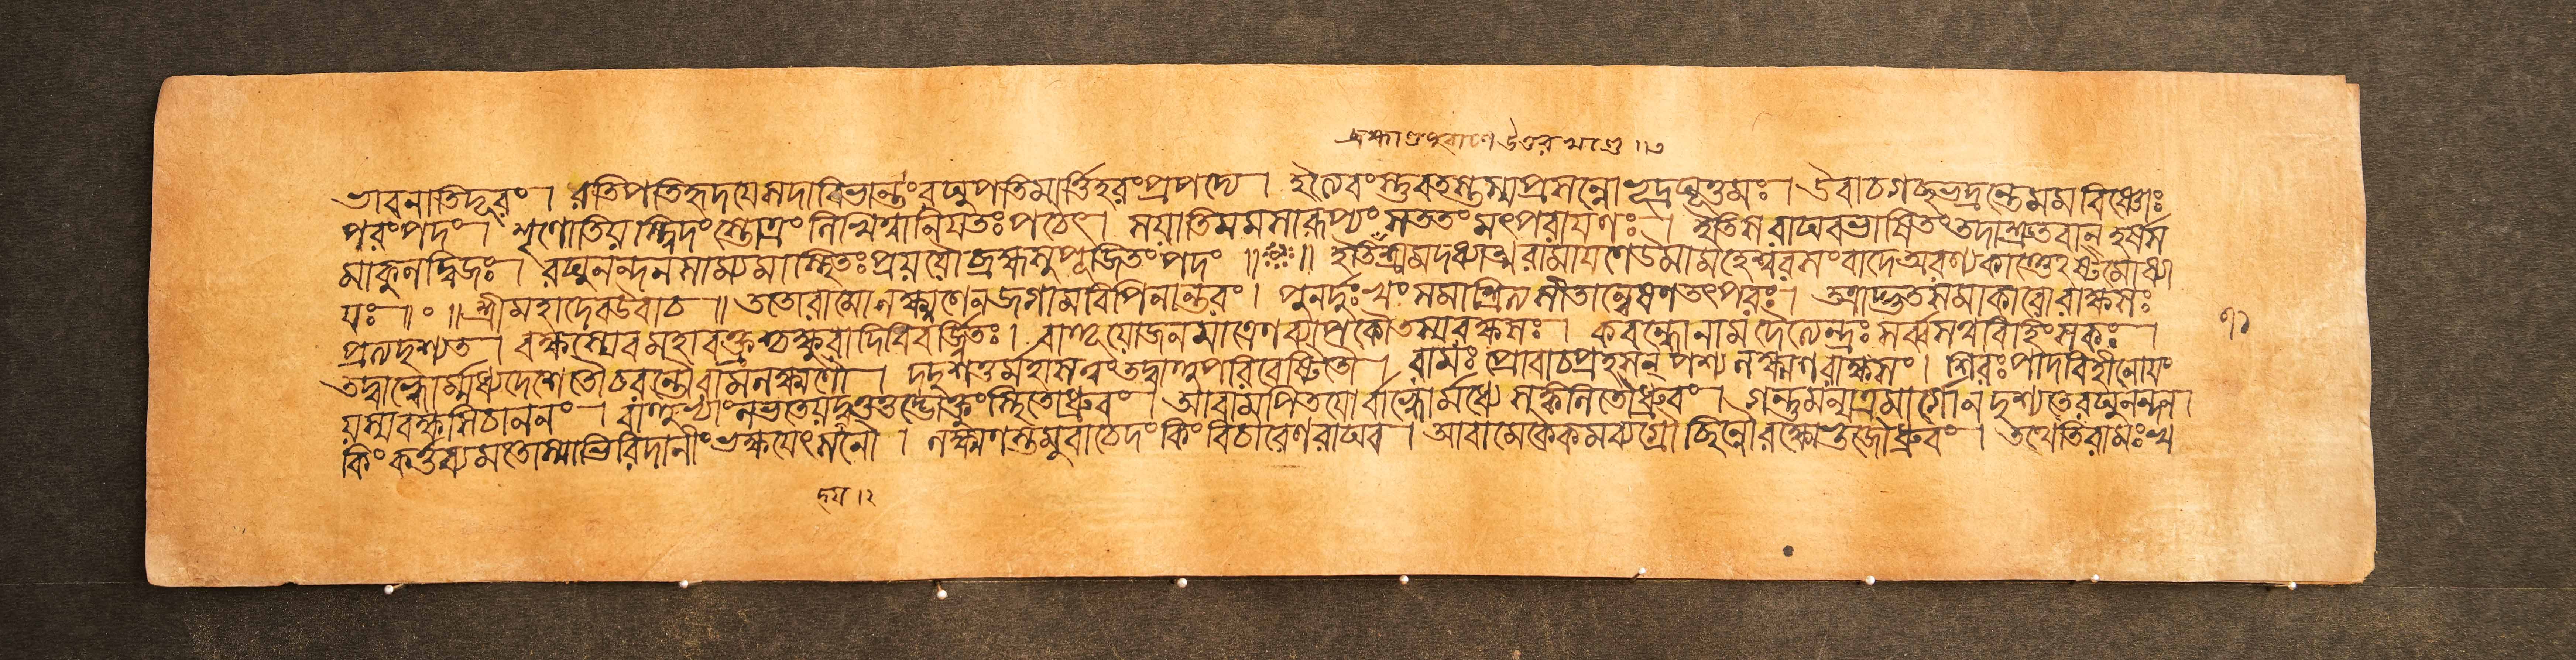 ব্রহ্মাণ্ডপুরাণে উত্তর খণ্ডে ॥
ভাবনাতিদূরং । রতিপতিহৃদয়েসদাবিভান্তংরঘুপতিমার্ত্তিহরংপ্রপদ্যে । ইত্যেবংস্তুবতস্তস্যপ্রসন্নোভূদ্রঘূত্তমঃ । উবাচগচ্ছভদ্রন্তেমমবিষ্ণোঃ
পরংপদং । শৃণোতিয়স্ত্বিদংস্তোত্রংলিখিত্বানিয়তঃপঠেৎ । সয়াতিমমসারূপ্যংসততংমৎপরায়ণঃ । ইতিসরাঘবভাষিতংতদাশ্রুতবান্ হর্ষস
মাকুলদ্বিজঃ । রঘুনন্দনসাম্যমাস্থিতঃপ্রয়য়ৌব্রহ্মসুপূজিতংপদং ॥ ॥ ইতিশ্রীমদধ্যাত্মরামায়ণেউমামহেশ্বরসংবাদেঅরণ্যকাণ্ডেঽষ্টমোধ্যা
য়ঃ ॥ ॰ ॥ শ্রীমহাদেবউবাচ ॥ ততোরামোলক্ষ্মণেনজগামবিপিনান্তরং । পুনর্দুঃখংসমাশ্রিত্যসীতান্বেষণতৎপরঃ । তত্রাদ্ভুতসমাকারোরাক্ষসঃ
প্রত্যদৃশ্যত । বক্ষস্যেবমহাবক্ত্রশ্চক্ষুরাদিবিবর্জ্জিতঃ । বাহূয়োজনমাত্রেণব্যাপৃতৌতস্যরক্ষসঃ । কবন্ধোনামদৈত্যেন্দ্রঃসর্ব্বসত্ববিহিংসকঃ ।
তদ্বাহ্বোর্ম্মধ্যদেশেতৌচরন্তৌরামলক্ষ্মণৌ । দদৃশতুর্মহাসত্বংতদ্বাহুপরিবেষ্টিতৌ । রামঃ প্রোবাচপ্রহসন্ পশ্যলক্ষ্মণরাক্ষসং । শিরঃপাদবিহীনোয়ং
য়স্যবক্ষসিচাননং । বাহুভ্যাংলভ্যতেয়দ্যত্তত্তদ্ভোক্তুংস্থিতোধ্রুবং । আবামপিতয়োর্বাহ্বোর্মধ্যে সংকলিতৌধ্রুবং । গন্তুমন্যত্রমার্গোনদৃশ্যতেরঘুনন্দন ।
কিংকর্ত্তব্যমতোস্মাভিরিদানীংভক্ষয়েৎসনৌ । লক্ষ্মণস্তমুবাচেদংকিংবিচারেণরাঘব । আবামেকৈকমব্যগ্রৌছিন্দ্যাবরক্ষোভুজৌধ্রুবং । তথেতিরামঃখ
৭১